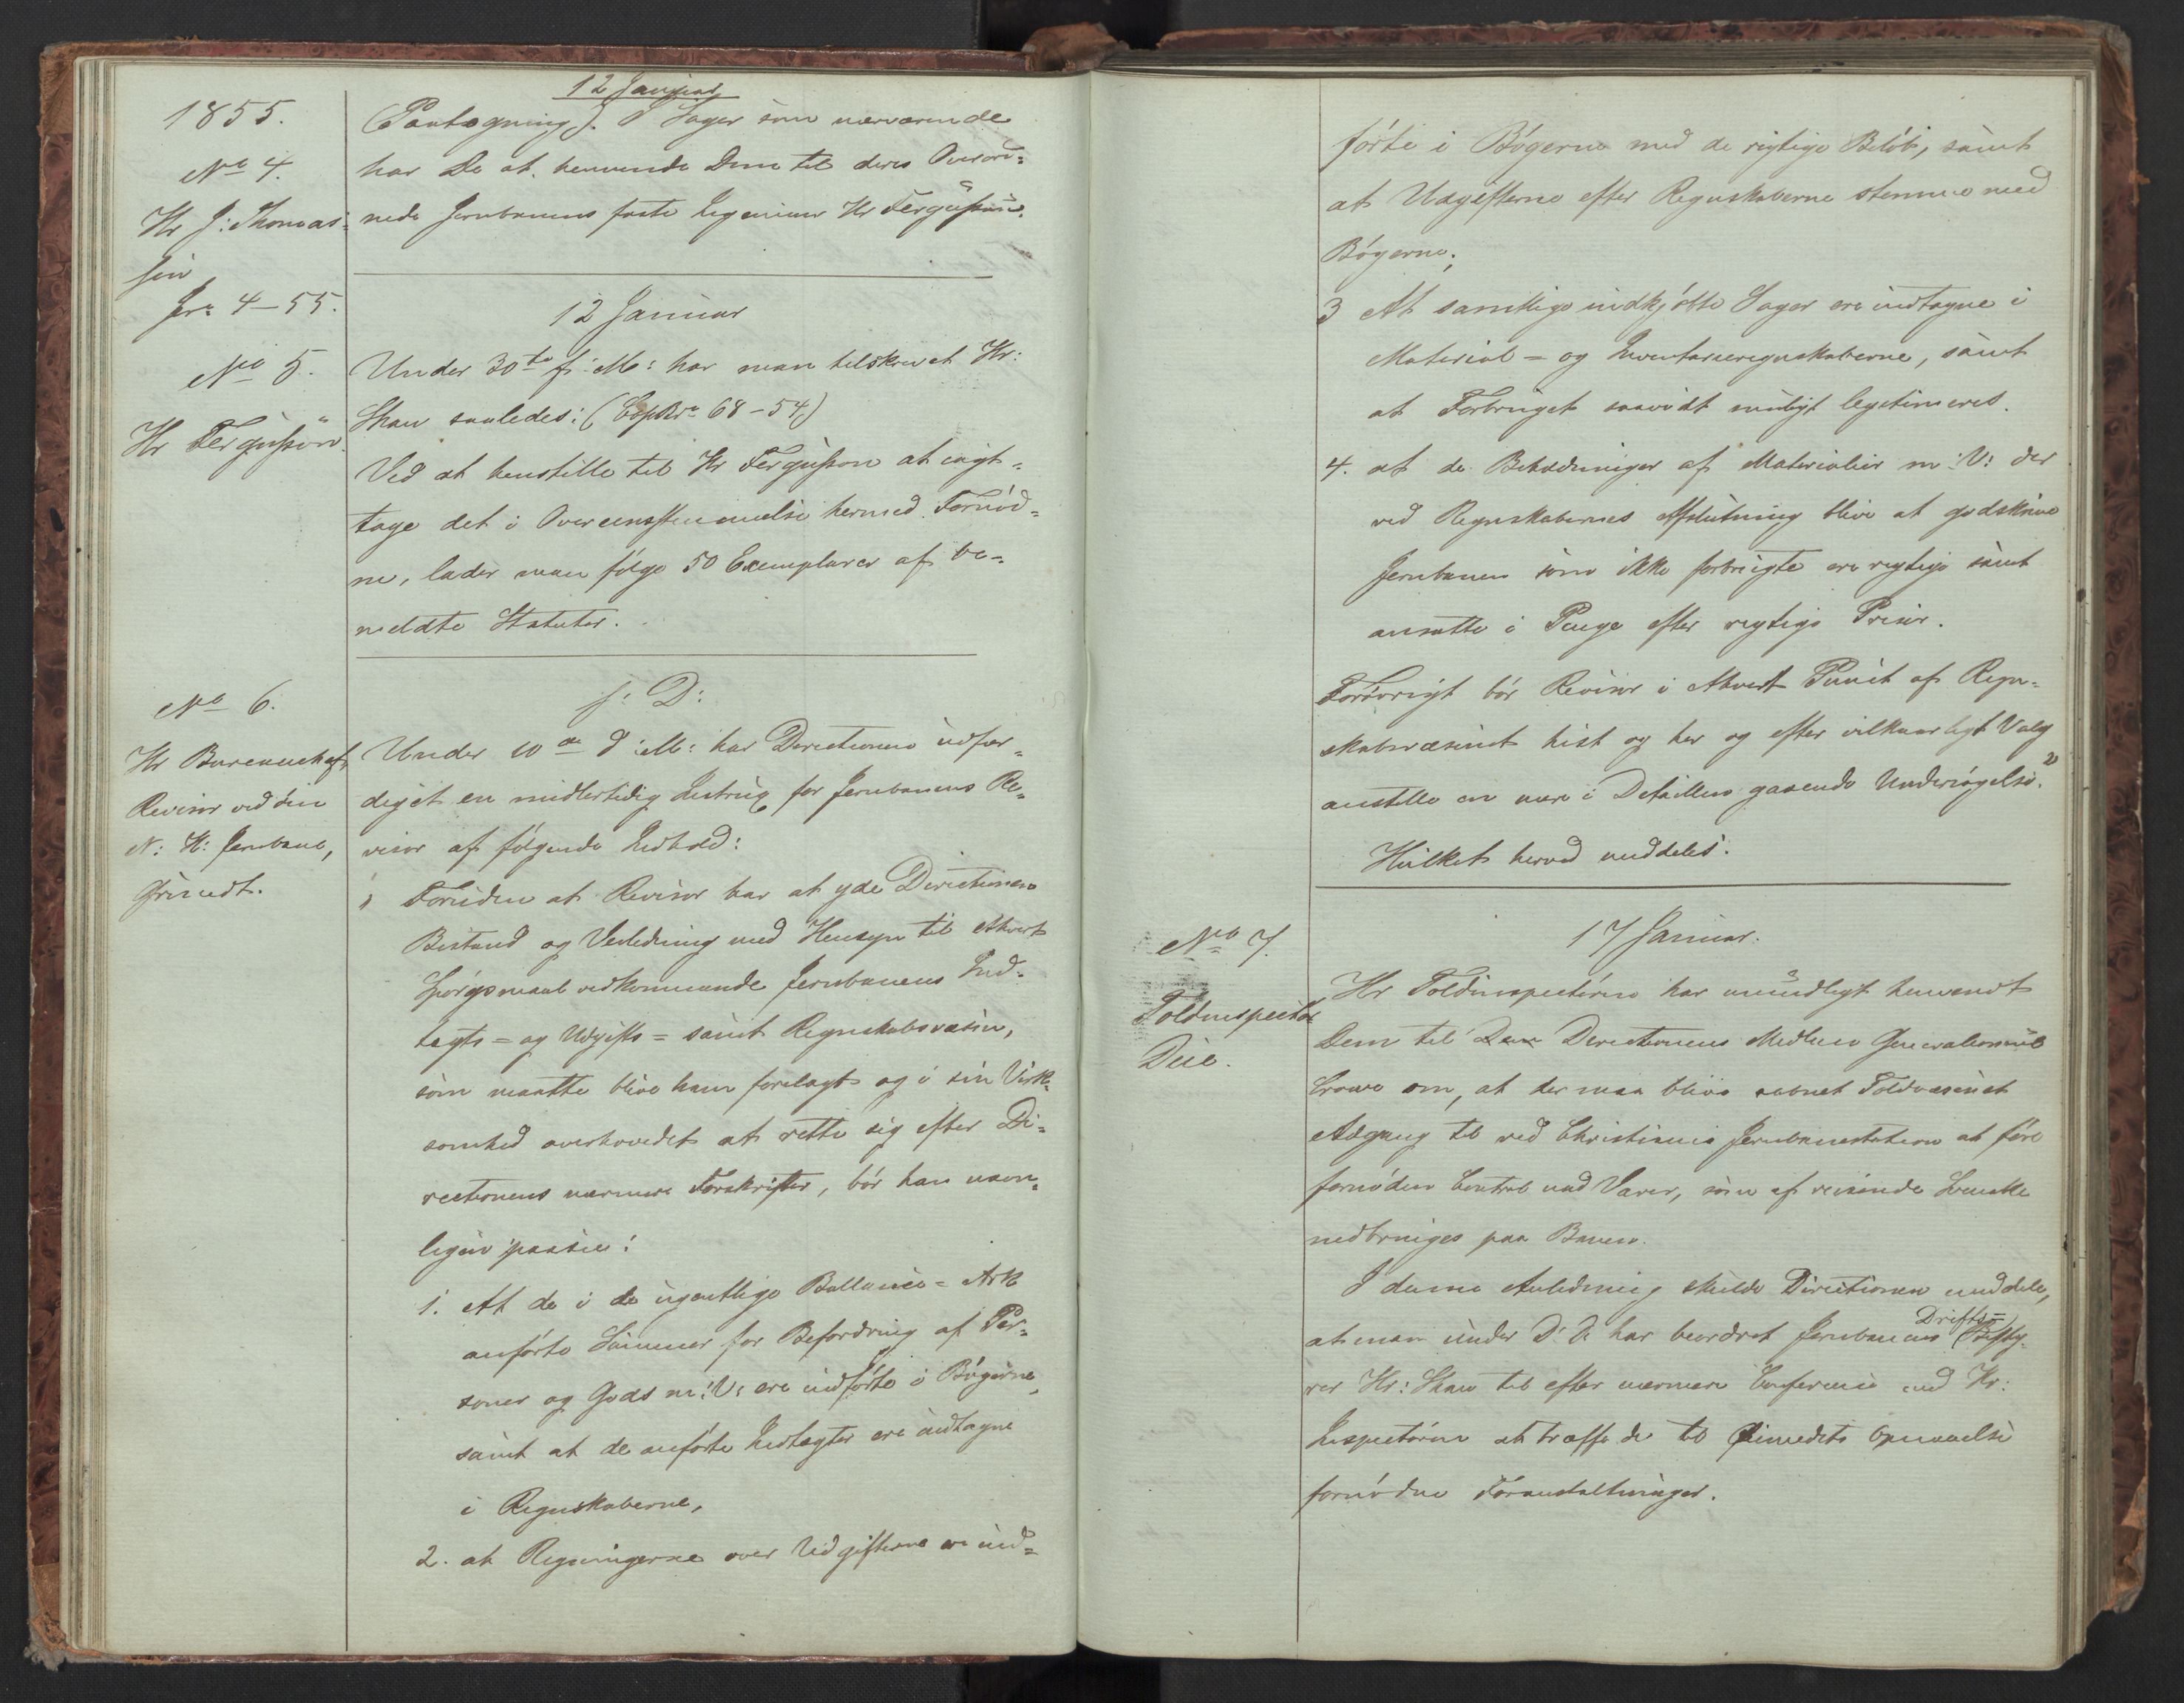 1855.
12 Januar
No 4.
Hr J: Thomas-
sen
Jr: 4-55.
(Paategning). I Sager som nærværende
har De at henvende Dem til deres Overord-
nede Jernbanens faste Ingenieur Hr Fergusson.
12 Januar
No 5.
Hr Fergusson.
Under 30te f: M: har man tilskrevet Hr:
Shaw saaledes: (Copbr: 68-54)
Ved at henstille til Hr Fergusson at iagt-
tage det i Overensstemmelse hermed Fornød-
ne, lader man følge 50 Exemplarer af be-
meldte Statuter.
s: D:
No 6.
Hr Bureauchef,
Revisor ved den
N: H: Jernbane,
Grundt.
Under 10de d: M: har Directionen udfær-
diget en midlertidig Instrux for Jernbanens Re-
visor af følgende Indhold:
" Foruden at Revisor har at yde Directionen
Bistand og Veiledning med Hensyn til ethvert
Spørgsmaal vedkommende Jernbanens Ind-
tægts- og Udgifts- samt Regnskabsvæsen,
som maatte blive ham forelagt og i sin Virk-
somhed overhovedet at rette sig efter Di-
rectionens nærmere Forskrifter, bør han navn-
ligen paasee:
1. At de i de ugentlige Ballance-Ark
anførte Summer for Befordring af Per-
soner og Gods m: V: ere indførte i Bøgerne,
samt at de anførte Indtægter ere indtagne
i Regnskaberne,
2. at Regningerne over Udgifterne ere ind-
førte i Bøgerne med de rigtige Beløb, samt
at Udgifterne efter Regnskaberne stemme med
Bøgerne;
3 At samtlige indkjøbte Sager ere indtagne i
Material- og Inventarieregnskaberne, samt
at Forbruget saavidt muligt legitimeres.
4. at de Beholdninger af Materialier m: V: der
ved Regnskabernes Afslutning blive at godskrive
Jernbanen som ikke forbrugte ere rigtige samt
ansatte i Penge efter rigtige Priser.
Forøvrigt bør Revisor i ethvert Punct af Regn-
skabsvæsenet hist og her og efter vilkaarligt Valg
anstille en mere i Detaillen gaaende Undersøgelse."
Hvilket herved meddeles.
17 Januar.
No 7.
Toldinspecteur
Deie.
Hr Toldinspecteuren har mundligt henvendt
Dem til Directionens Medlem Generalconsul
Crowe om, at der maa blive aabnet Toldvæsenet
Adgang til ved Christiania Jernbanestation at føre
fornøden Control med Varer, som af reisende Svenske
nedbringes paa Banen.
I denne Anledning skulde Directionen meddele,
at man under D: D: har beordret Jernbanens Drifts- Besty-
rer Hr: Shaw til efter nærmere Conference med Hr:
Inspecteuren at træffe de til Øiemedets Opnaaelse
fornødne Foranstaltninger.